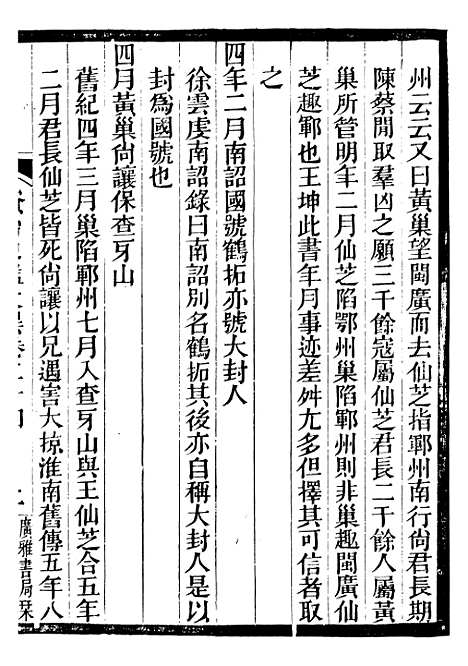 州云云又曰黃巢望閩廣而去仙芝指鄆州南行尚君長期
陳蔡閒取羣凶之願三千餘寇屬仙芝君長二千餘人屬黃
巢所管明年二月仙芝陷鄂州巢陷鄆州則非巢趣閩廣仙
芝趣鄆也王坤此書年月事迹差舛尤多但擇其可信者取
之
四年二月南詔國號鶴拓亦號大封人
徐雲虔南詔錄曰南詔別名鶴拓其後亦自稱大封人是以
封爲國號也
四月黃巢尙讓保查牙山
舊紀四年三月巢陷鄆州七月入查牙山與王仙芝合五年
二月君長仙芝皆死尙讓以兄遇害大掠淮南舊傳五年八
廣雅書局栞